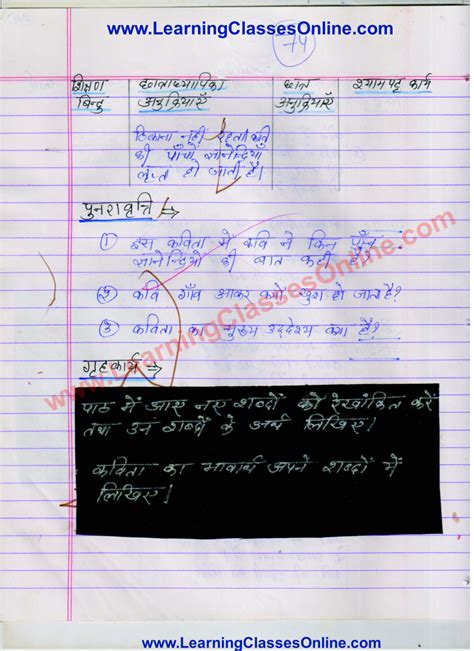 www.LearningClassesOnline.com
14
शिक्षण छात्राध्यापिका छात्र श्यामपट्ट कार्य
बिन्दु अनुक्रियाएँ अनुक्रियाएँ
ठिकाना नहीं रहता। कवि
की पाँचों ज्ञानेन्द्रियाँ
तृप्त हो जाती हैं।
पुनरावृत्ति →
① इस कविता में कवि ने किन पाँच
ज्ञानेन्द्रियों की बात कही है?
② कवि गाँव आकर क्यों खुश हो जाता है?
③ कविता का मुख्य उद्देश्य क्या है?
गृहकार्य →
पाठ में आए नए शब्दों को रेखांकित करें
तथा उन शब्दों के अर्थ लिखिए।
कविता का भावार्थ अपने शब्दों में
लिखिए।
www.LearningClassesOnline.com
www.LearningClassesOnline.com